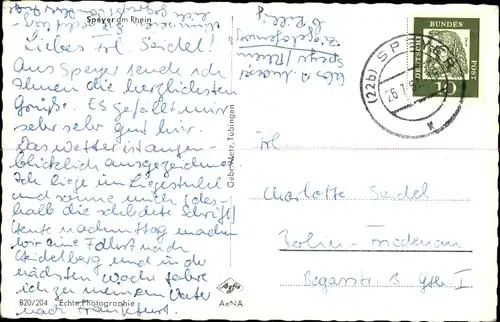 Speyer am Rhein
Liebes Frl. Seidel!
Aus Speyer sende ich
Ihnen die herzlichsten
Grüße. Es gefällt mir
sehr sehr gut hier.
Das Wetter ist augen-
blicklich ausgezeichnet.
Ich liege im Liegestuhl
und sonne mich (des-
halb die schlechte Schrift)
Heute nachmittag machen
wir eine Fahrt nach
Heidelberg und in der
nächsten Woche fahre
ich zu meinem Vater
nach Frankfurt.
820/204 Echte Photographie
Gebr. Metz, Tübingen
Agfa
AeNA
Speyer/Rhein
DEUTSCHE BUNDESPOST
10
(22b) SPEYER
Frl.
Charlotte Seidel
Berlin-Friedenau
Begasstr. 3 Gth. I